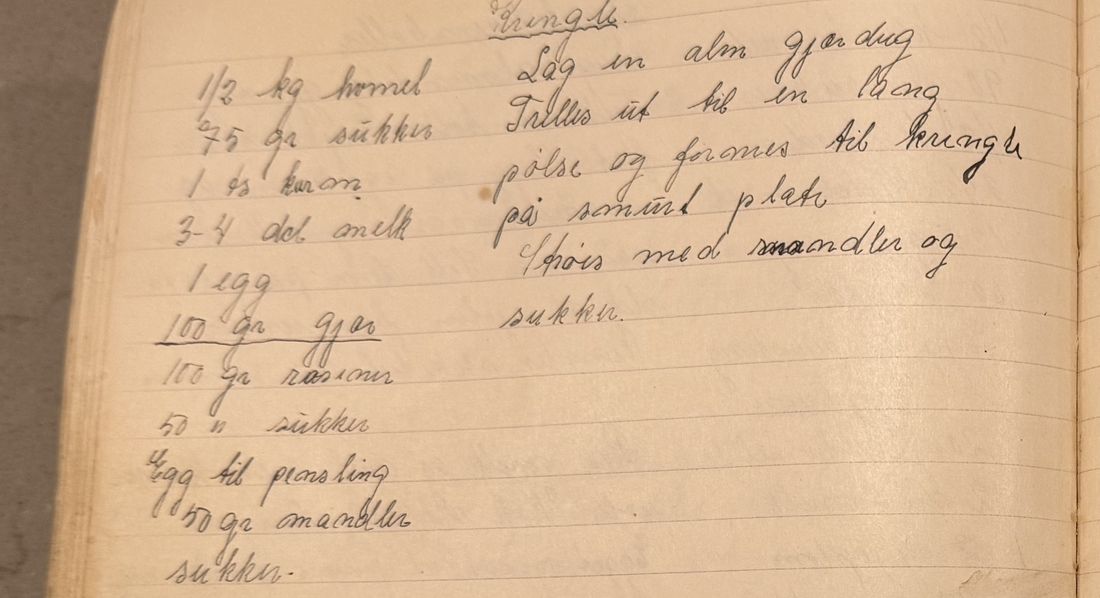 Kringle.
1/2 kg hvmel
75 gr sukker
1 ts karom
3-4 del melk
1 egg
100 gr gjær
100 gr rosiner
50 " sukker
Egg til pensling
50 gr mandler
sukker.
Lag en alm gjærdeig
Trilles ut til en lang
pølse og formes til kringle
på smurt plate
Strøes med mandler og
sukker.